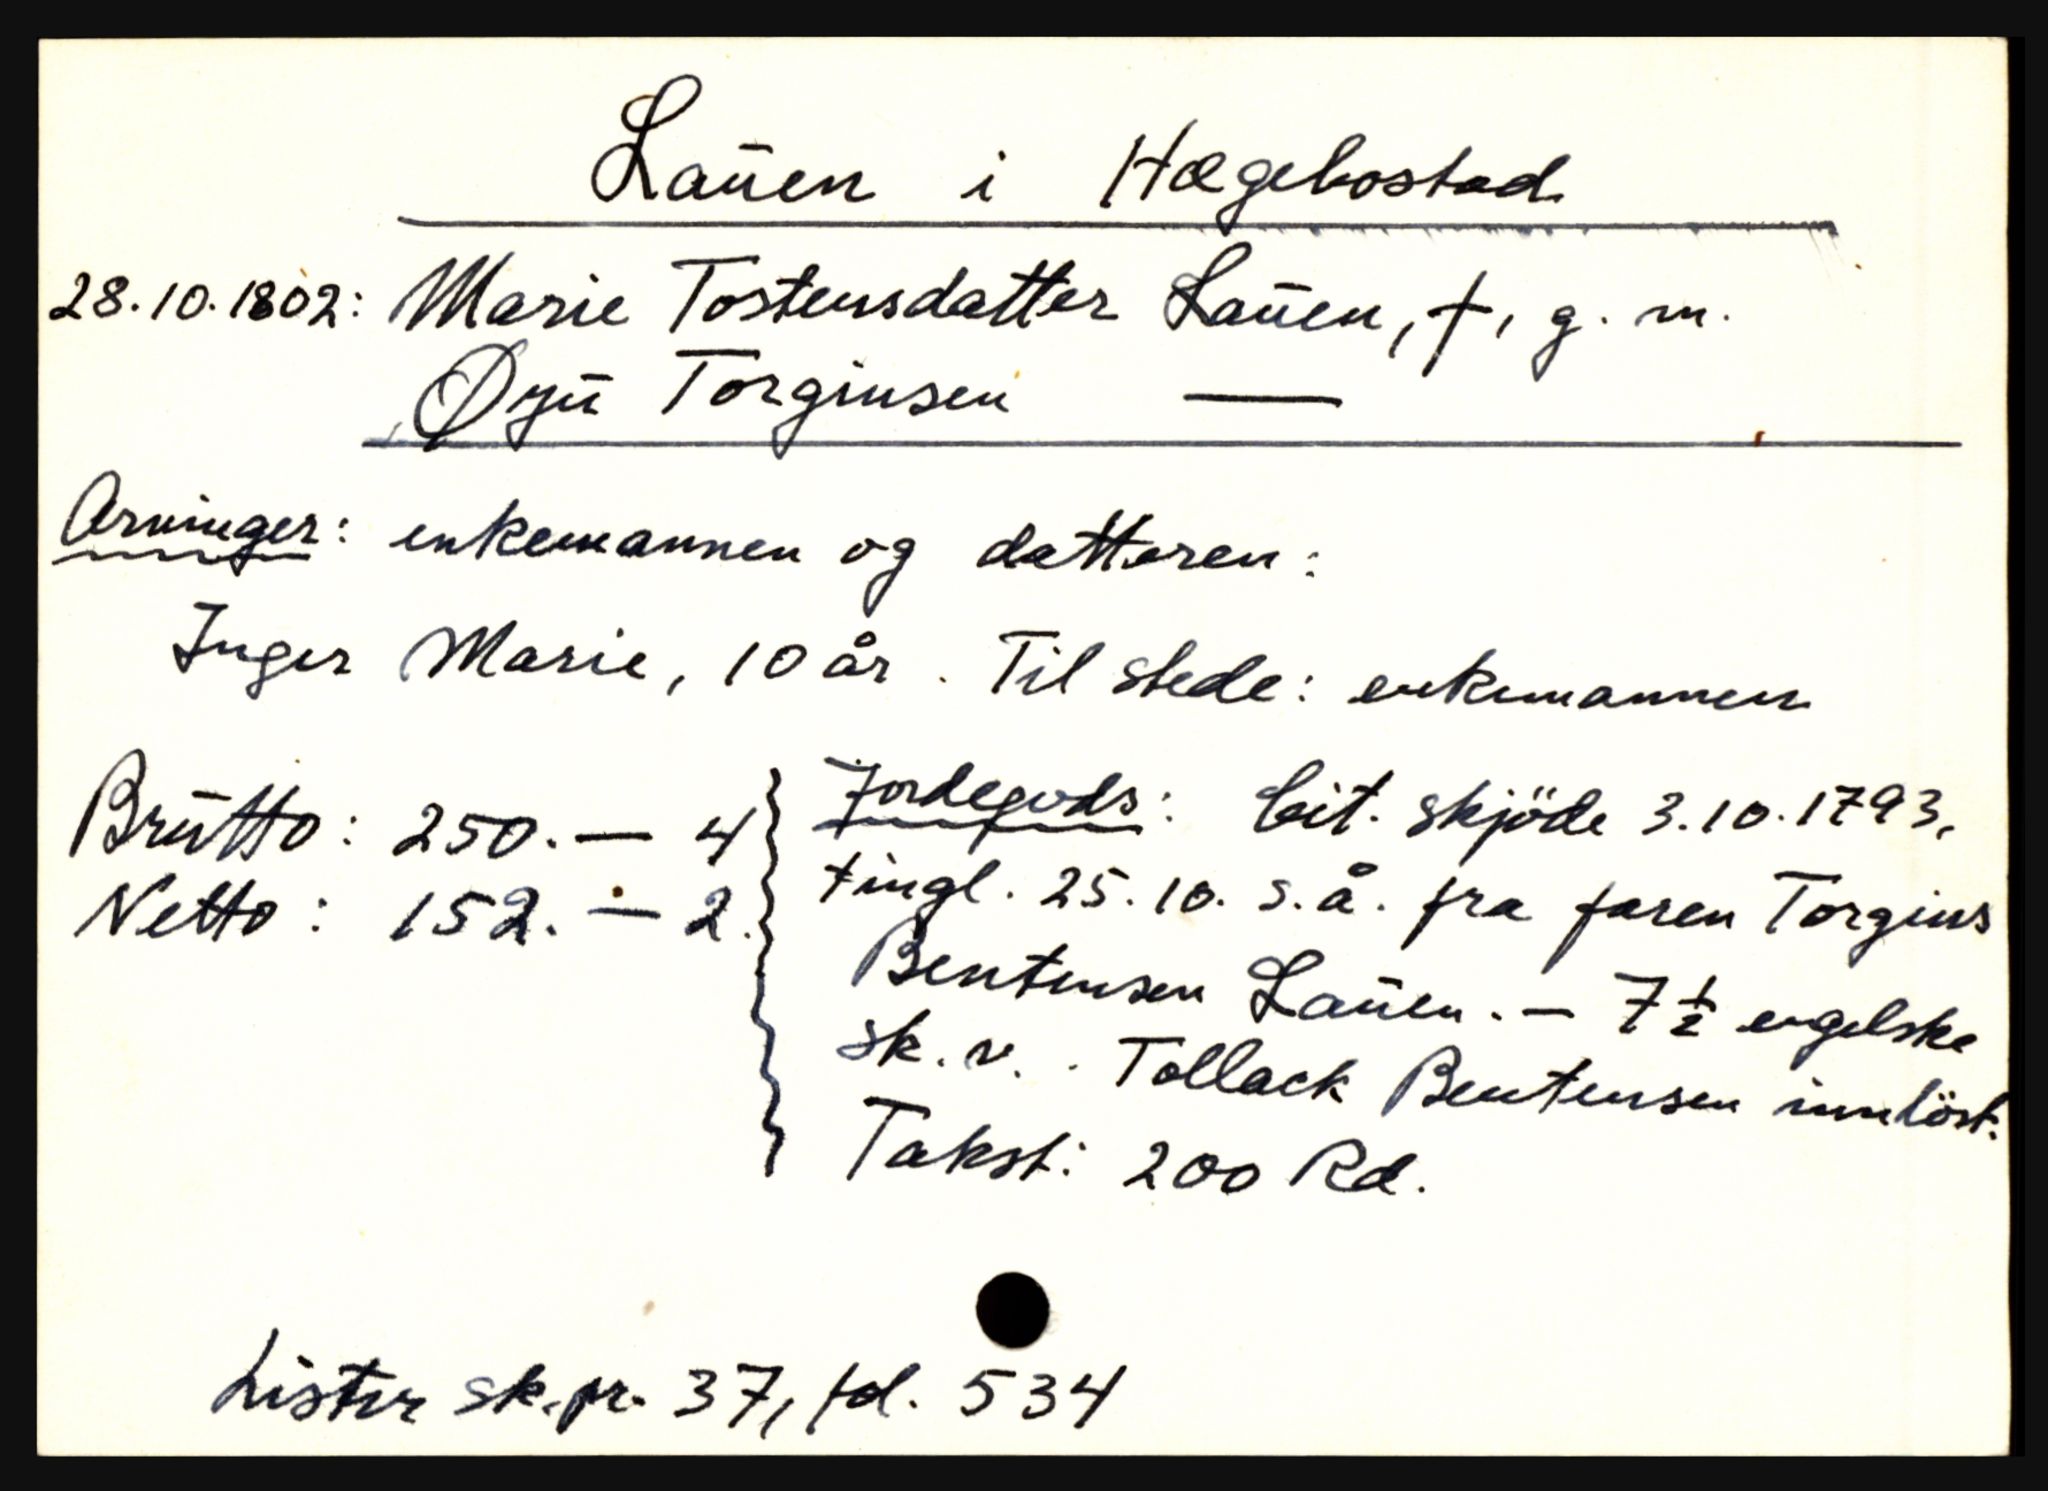 Lauen i Hægebostad
28.10.1802: Marie Tostensdatter Lauen, †, g. m.
Øyu Torginsen —
Arvinger: enkemannen og datteren:
Inger Marie, 10 år. Til stede: enkemannen
Brutto: 250. — 4
Netto: 152. — 2.
Jordegods: bit. skjöde 3.10.1793,
tingl. 25.10. s.å. fra faren Torgius
Bentensen Lauen. — 7 ½ engelske
sk. v. . Tollack Bentensen innlöst.
Takst: 200 Rd.
Lister sk.pr. 37, fol. 534